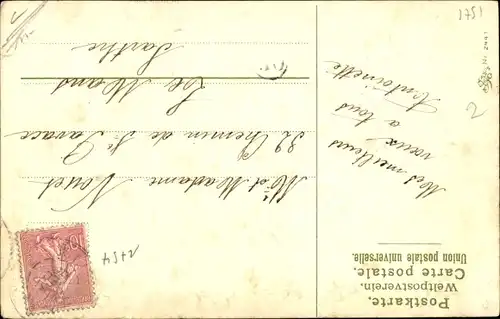 Postkarte.
Weltpostverein.
Carte postale.
Union postale universelle.
Mes meilleurs
vœux
a tous
Antoinette
Mr et Madame Nouet
32 Chemin de St Pavace
Le Mans
Sarthe
1751
2